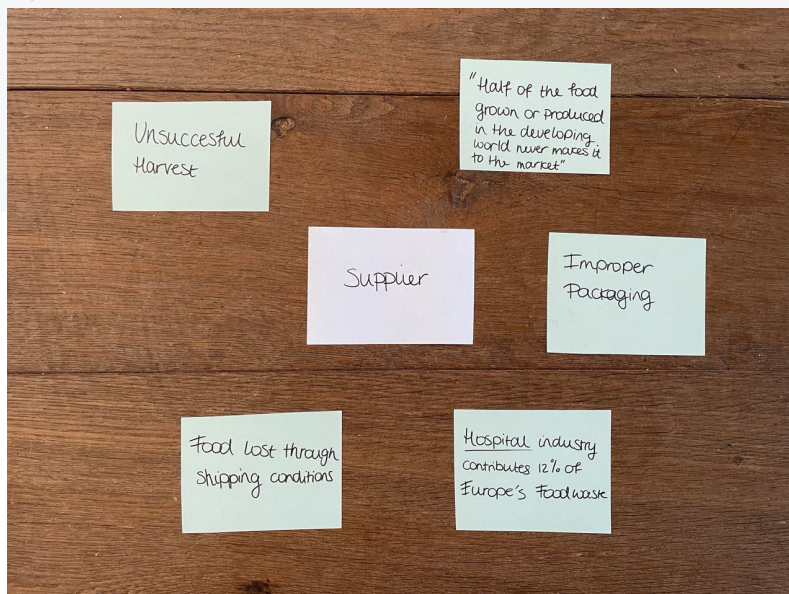 Unsuccesful
Harvest
"Half of the food
grown or produced
in the developing
world never makes it
to the market"
Supplier
Improper
Packaging
Food Lost through
shipping conditions
Hospital industry
contributes 12% of
Europe's Foodwaste